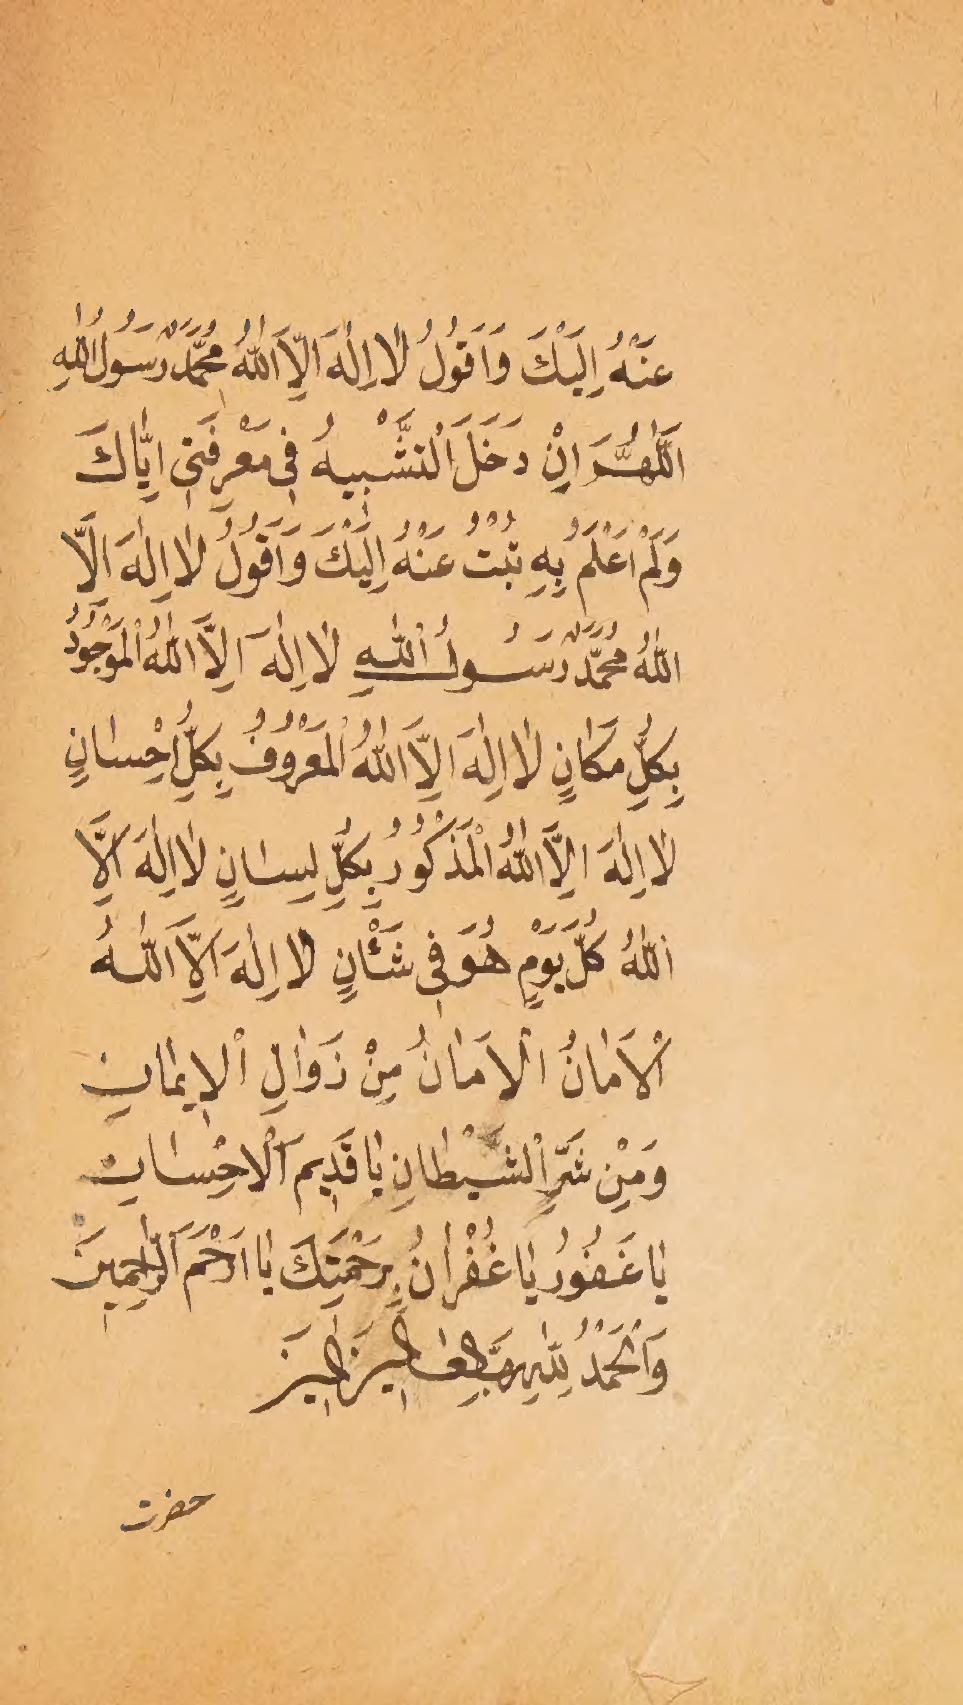 عَنْهُ اِلَيْكَ وَاَقُولُ لَا اِلٰهَ اِلَّا اللّٰهُ مُحَمَّدٌ رَسُولُ اللّٰهِ
اَللّٰهُمَّ اِنْ دَخَلَ التَّشْبِيهُ فِى مَعْرِفَتِى اِيَّاكَ
وَلَمْ اَعْلَمْ بِهِ تُبْتُ عَنْهُ اِلَيْكَ وَاَقُولُ لَا اِلٰهَ اِلَّا
اللّٰهُ مُحَمَّدٌ رَسُولُ اللّٰهِ لَا اِلٰهَ اِلَّا اللّٰهُ الْمَوْجُودُ
بِكُلِّ مَكَانٍ لَا اِلٰهَ اِلَّا اللّٰهُ الْمَعْرُوفُ بِكُلِّ اِحْسَانٍ
لَا اِلٰهَ اِلَّا اللّٰهُ الْمَذْكُورُ بِكُلِّ لِسَانٍ لَا اِلٰهَ اِلَّا
اللّٰهُ كُلَّ يَوْمٍ هُوَ فِى شَأْنٍ لَا اِلٰهَ اِلَّا اللّٰهُ
اَلْاَمَانُ الْاَمَانُ مِنْ زَوَالِ الْاِيمَانِ
وَمِنْ شَرِّ الشَّيْطَانِ يَا قَدِيمَ الْاِحْسَانِ
يَا غَفُورُ يَا غُفْرَانُ بِرَحْمَتِكَ يَا اَرْحَمَ الرَّاحِمِينَ
وَالْحَمْدُ لِلّٰهِ رَبِّ الْعَالَمِينَ
حضرت